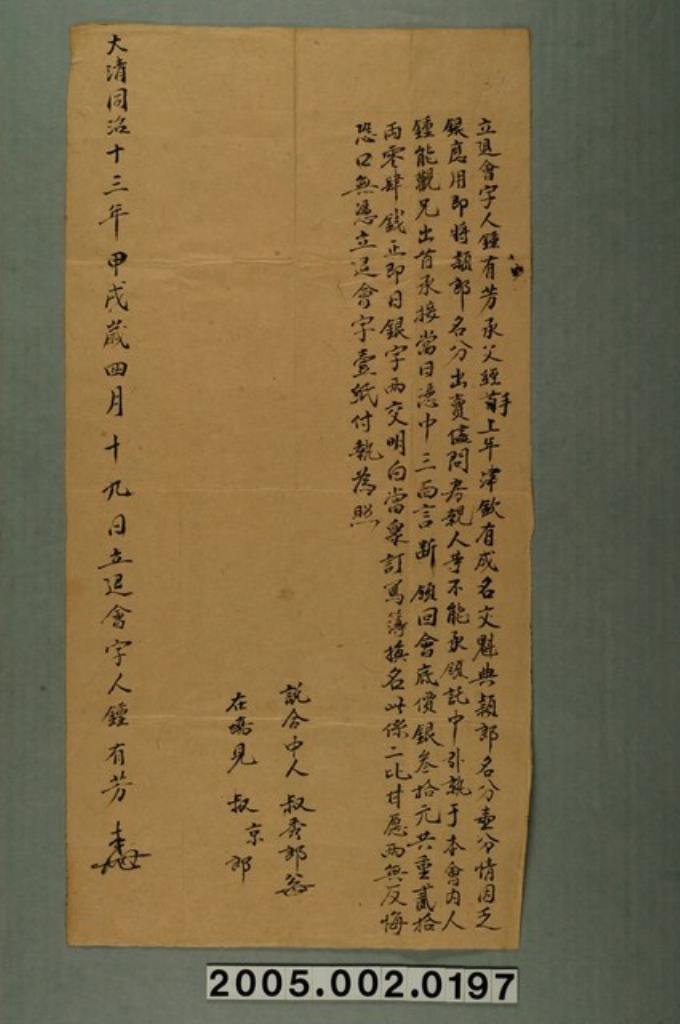 立退會字人鍾有芳承父經手首上年津飲有成名文魁典穎郎名分壹分情因乏
銀應用即將穎郎名分出賣儘問房親人等不能承領託中引就于本會內人
鍾能觀兄出首承接當日憑中三面言斷領回會底價銀叁拾元共重貳拾
両零肆錢正即日銀字両交明白當眾訂寫簿換名此係二比甘愿両無反悔
恐口無憑立退會字壹紙付執為照
說合中人叔秀郎
在場見叔京郎
大清同治十三年甲戌歲四月十九日立退會字人鍾有芳
2005.002.0197